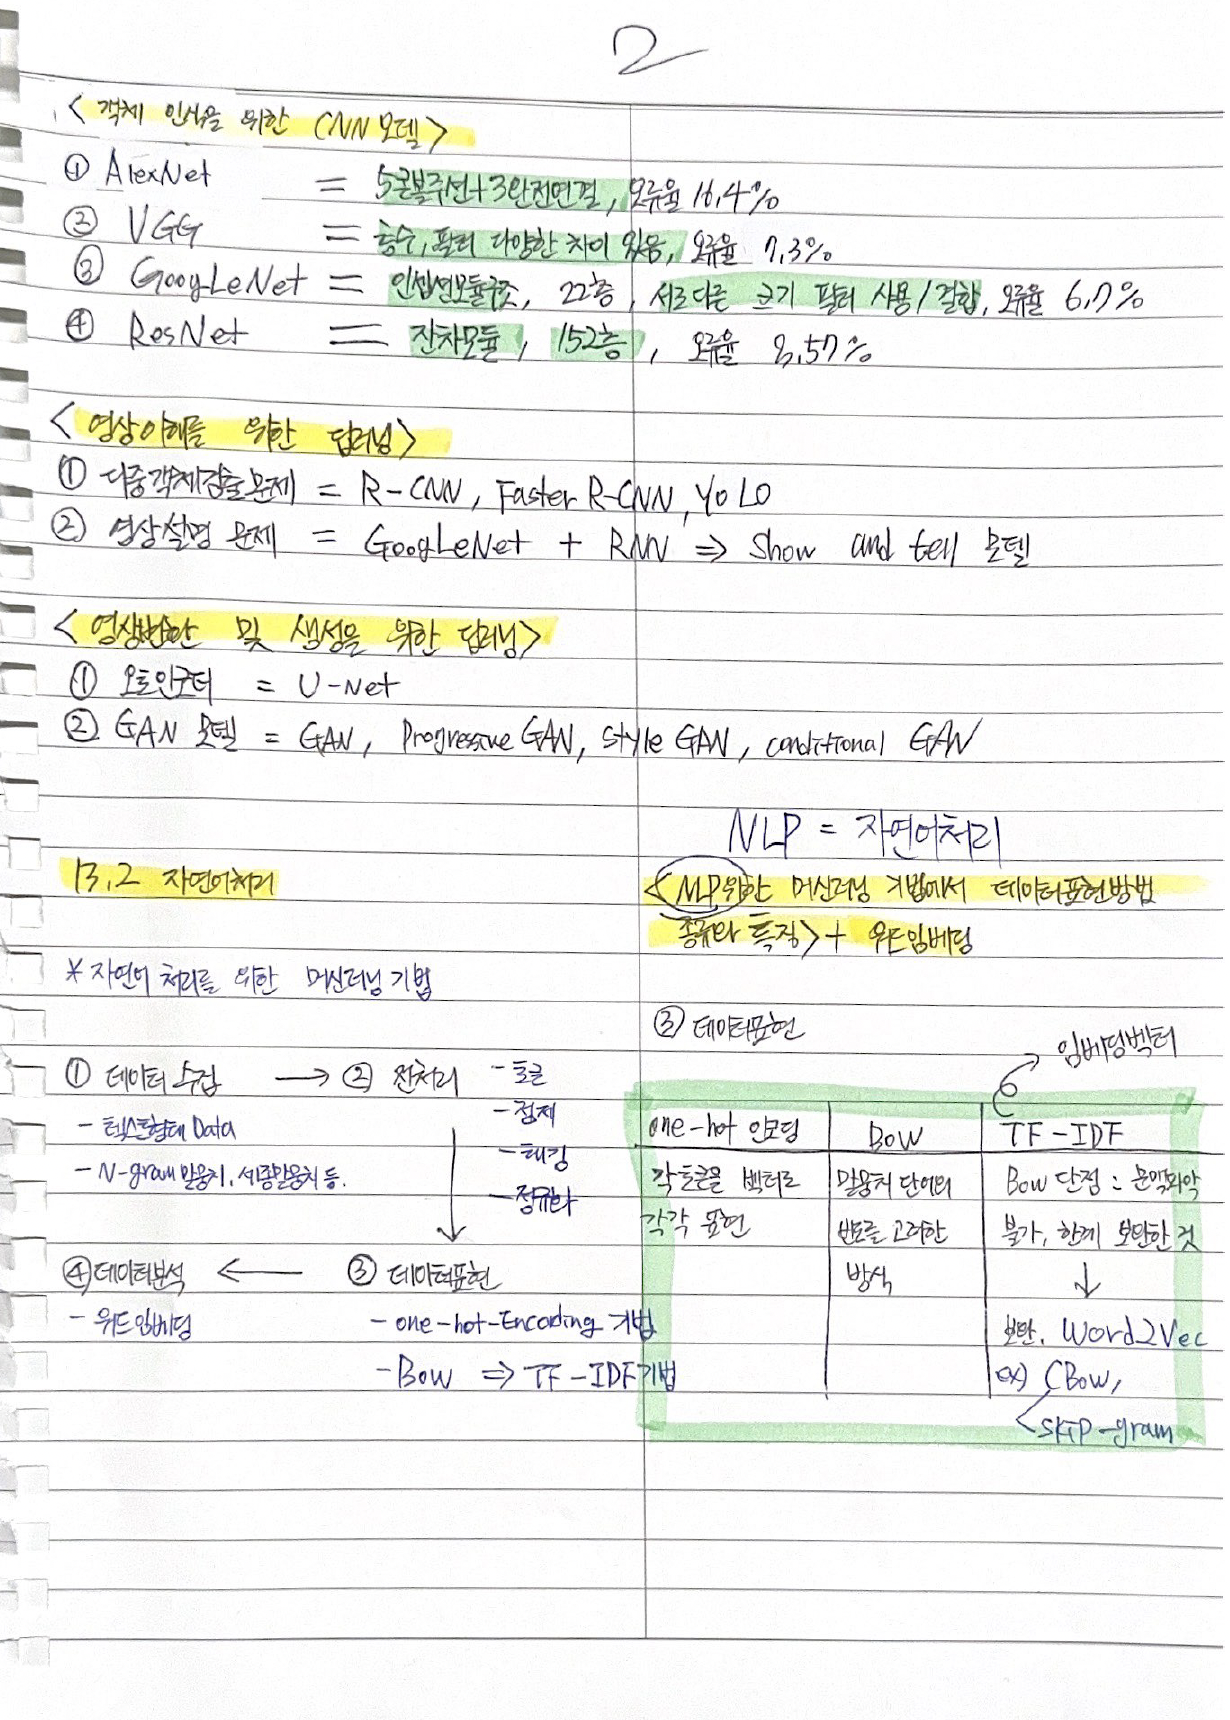 2
<객체 인식을 위한 CNN 모델>
① AlexNet = 5콘볼루션+3완전연결, 오류율 16.4%
② VGG = 층수, 필터 다양한 차이 있음, 오류율 7.3%
③ GoogLeNet = 인셉션모듈구조, 22층, 서로다른 크기 필터 사용/결합, 오류율 6.7%
④ ResNet = 잔차모듈, 152층, 오류율 3.57%
<영상이해를 위한 딥러닝>
① 다중객체검출문제 = R-CNN, Faster R-CNN, YOLO
② 영상설명 문제 = GoogLeNet + RNN ⇒ Show and tell 모델
<영상변환 및 생성을 위한 딥러닝>
① 오토인코더 = U-Net
② GAN 모델 = GAN, Progressive GAN, style GAN, conditional GAN
13.2 자연어처리
* 자연어 처리를 위한 머신러닝 기법
① 데이터 수집 → ② 전처리
- 텍스트형태 Data
- N-gram 말뭉치, 세종말뭉치 등.
- 토큰
- 정제
- 태깅
- 정규화
④ 데이터분석 ← ③ 데이터표현
- 워드임베딩
- one-hot-Encoding 기법
- Bow ⇒ TF-IDF기법
NLP = 자연어처리
<NLP위한 머신러닝 기법에서 데이터표현방법
종류와 특징> + 워드임베딩
③ 데이터표현
임베딩벡터
one-hot 인코딩 | BOW | TF-IDF
각 토큰을 벡터로 | 말뭉치 단어의 | Bow 단점 : 문맥파악
각각 표현 | 빈도를 고려한 | 불가, 한계 보완한 것
방식 | ↓
보완. Word2Vec
ex) CBow,
SKIP-gram